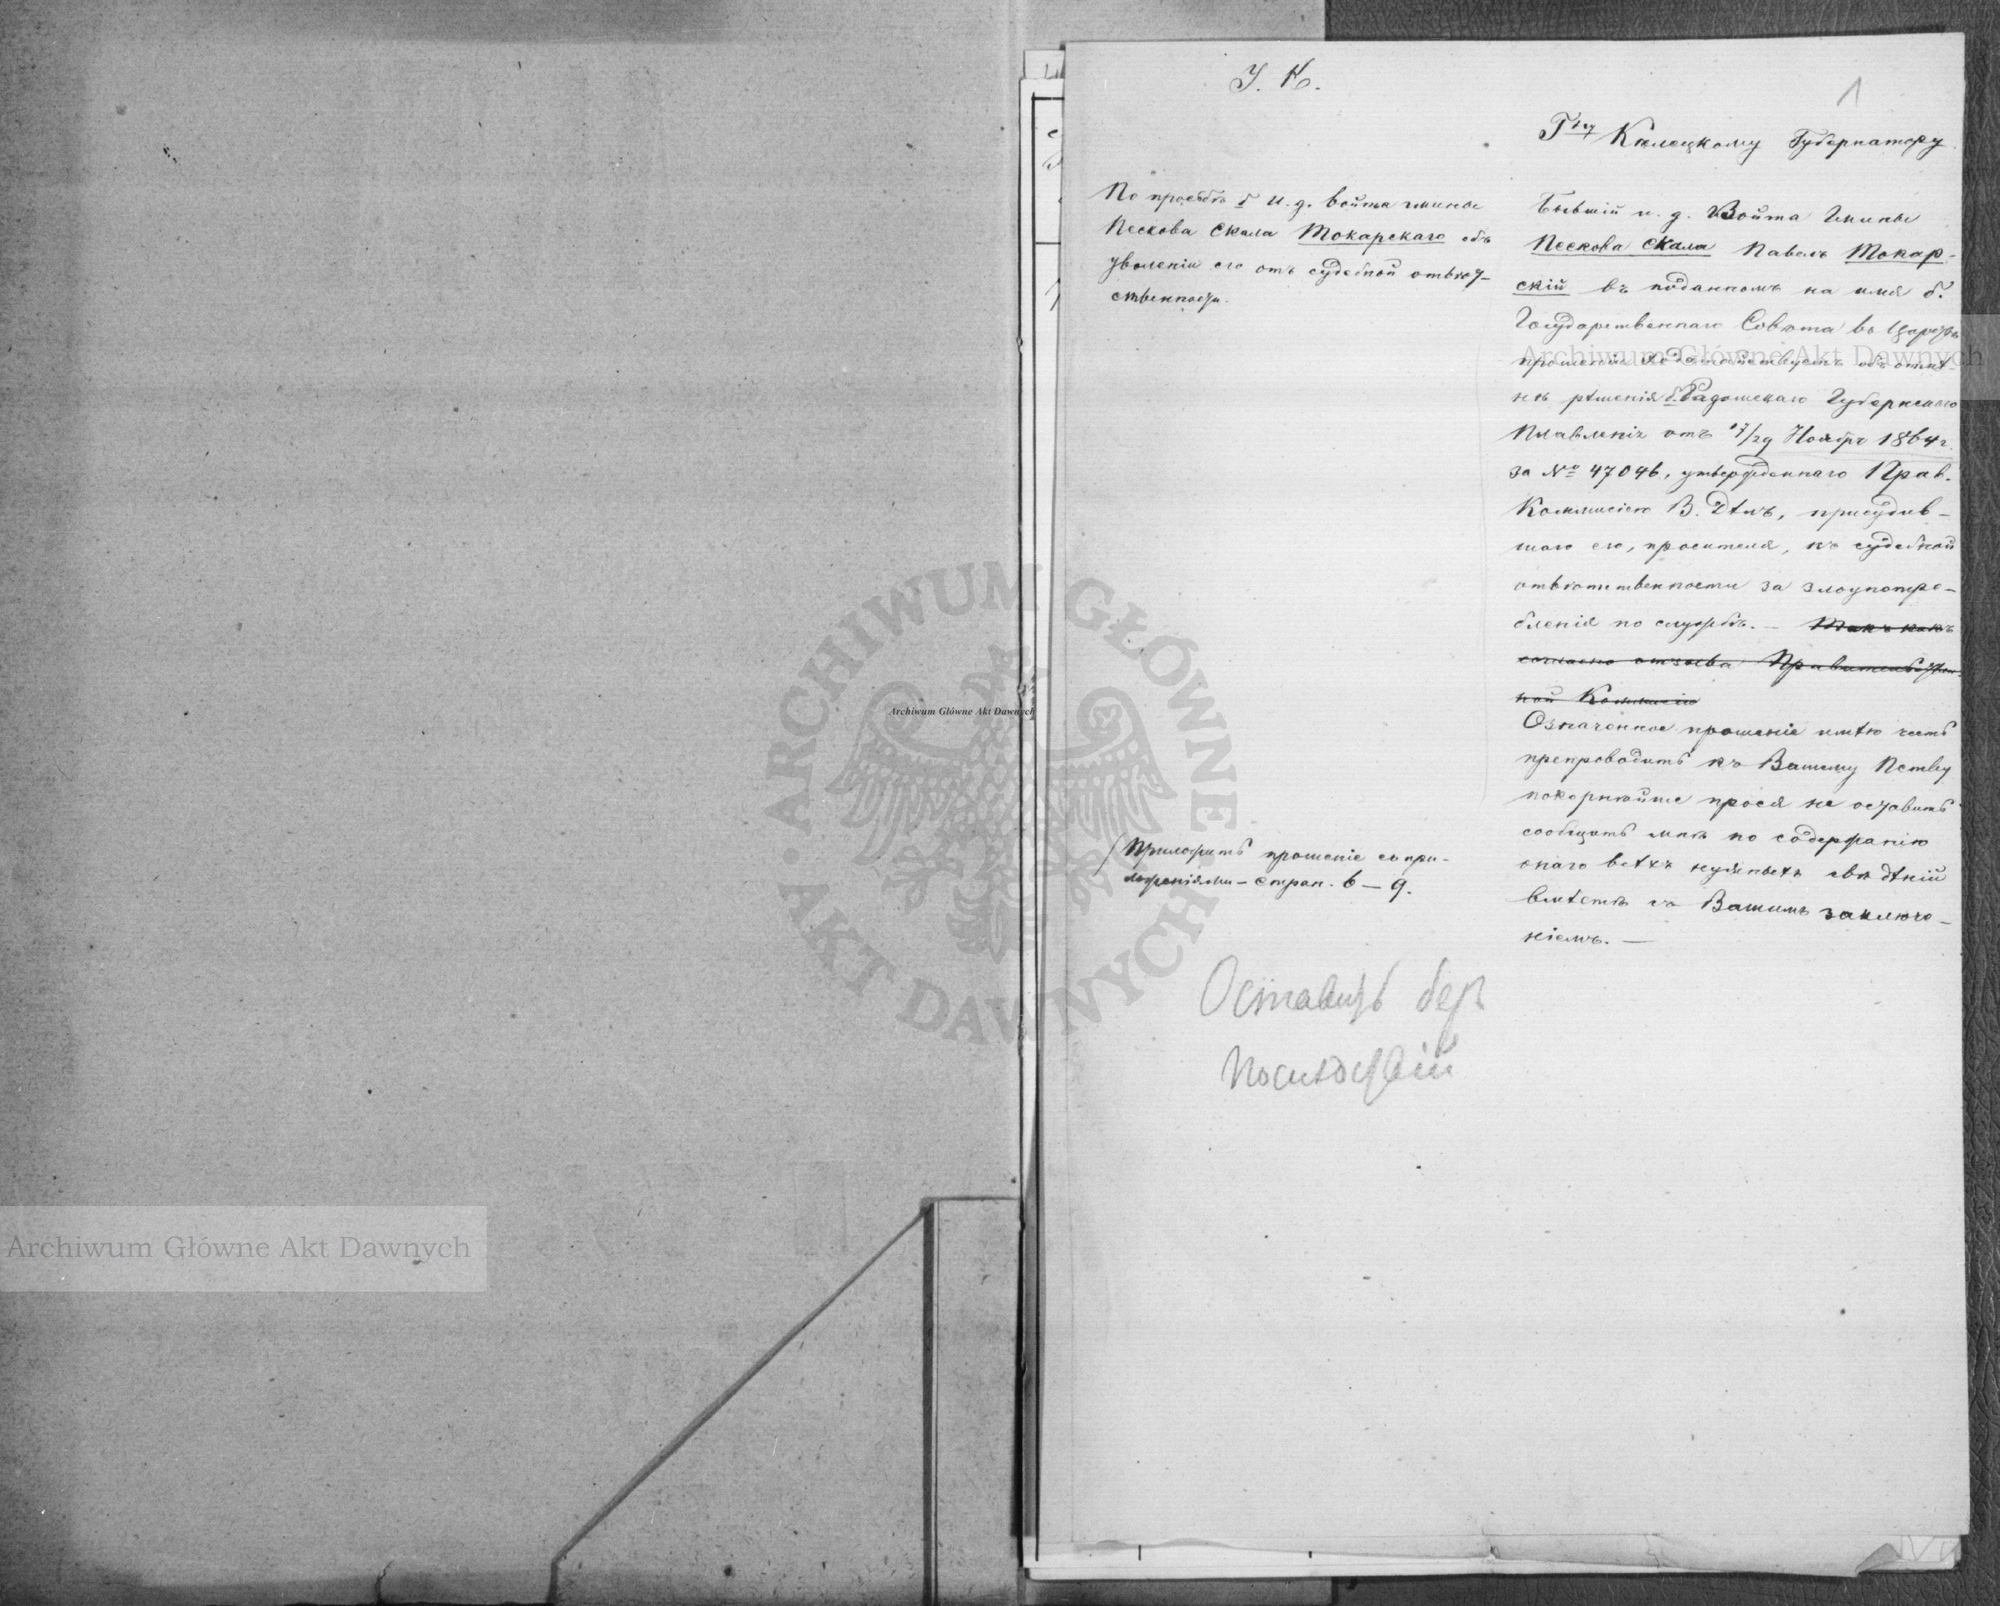 У. К.
1
Гну Келецкому Губернатору.
По просьбѣ б. и. д. войта гмины
Пескова Скала Токарскаго объ
уволеніи его отъ судебной отвѣт-
ственности.
Бывшій и. д. Войта Гмины
Пескова Скала Павелъ Токар-
скій въ поданномъ на имя б.
Государственнаго Совѣта въ Царствѣ
прошеніи ходатайствуетъ объ отмѣ-
нѣ рѣшенія б. Радомскаго Губернскаго
Правленія отъ 17/29 Ноября 1864 г.
за № 47046, утвержденнаго Прав.
Коммисіею В. Дѣлъ, присудив-
шаго его, просителя, къ судебной
отвѣтственности за злоупотре-
бленія по службѣ. — Такъ какъ
согласно отзыва Правительствен-
ной Коммисіи
Означенное прошеніе имѣю честь
препроводить къ Вашему Пству
покорнѣйше прося не оставить
сообщить мнѣ по содержанію
онаго всѣхъ нужныхъ свѣдѣній
вмѣстѣ съ Вашимъ заключе-
ніемъ. —
Приложить прошеніе съ при-
ложеніями — стран. 6 — 9.
Оставить безъ
послѣдствій
Archiwum Główne Akt Dawnych
Archiwum Główne Akt Dawnych
Archiwum Główne Akt Dawnych
ARCHIWUM GŁÓWNE AKT DAWNYCH